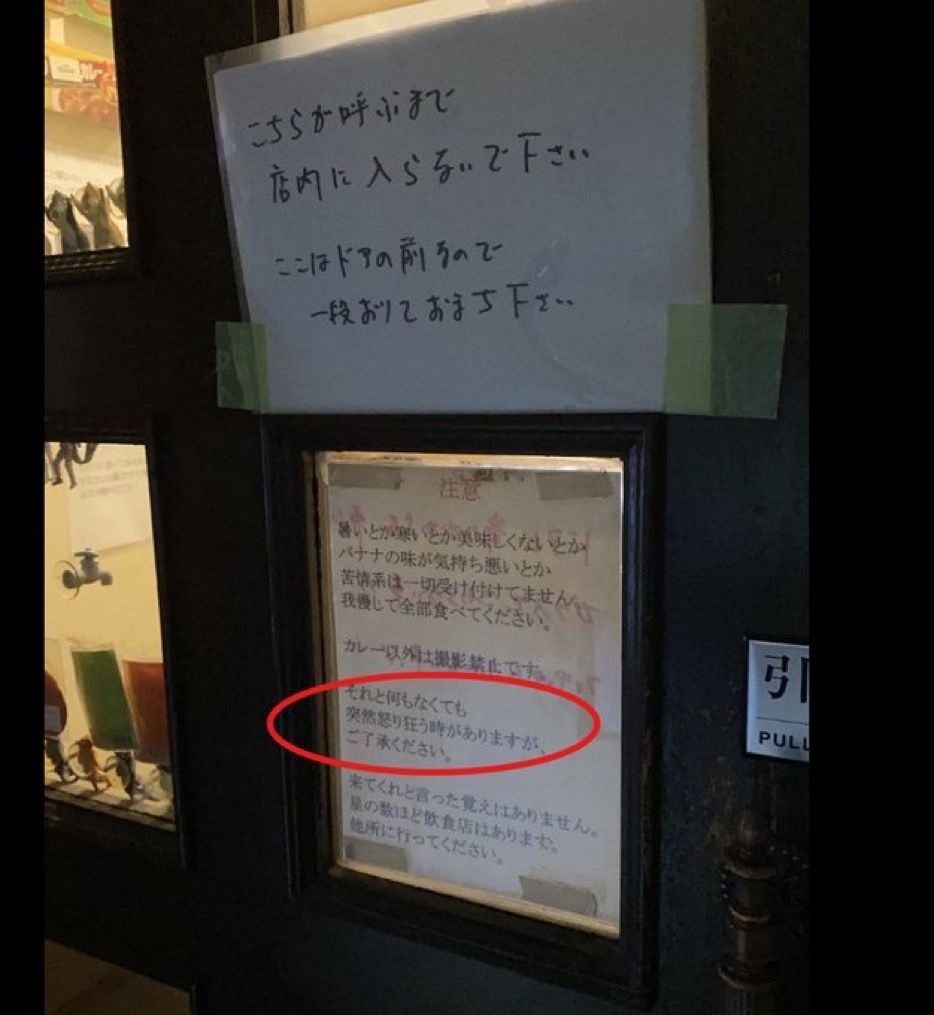 こちらが呼ぶまで
店内に入らないで下さい
ここはドアの前なので
一段おりておまち下さい
注意
暑いとか寒いとか美味しくないとか
バナナの味が気持ち悪いとか
苦情系は一切受け付けてません。
我慢して全部食べてください。
カレー以外は撮影禁止です。
それと何もなくても
突然怒り狂う時がありますが、
ご了承ください。
来てくれと言った覚えはありません。
星の数ほど飲食店はあります。
他所に行ってください。
引
PULL